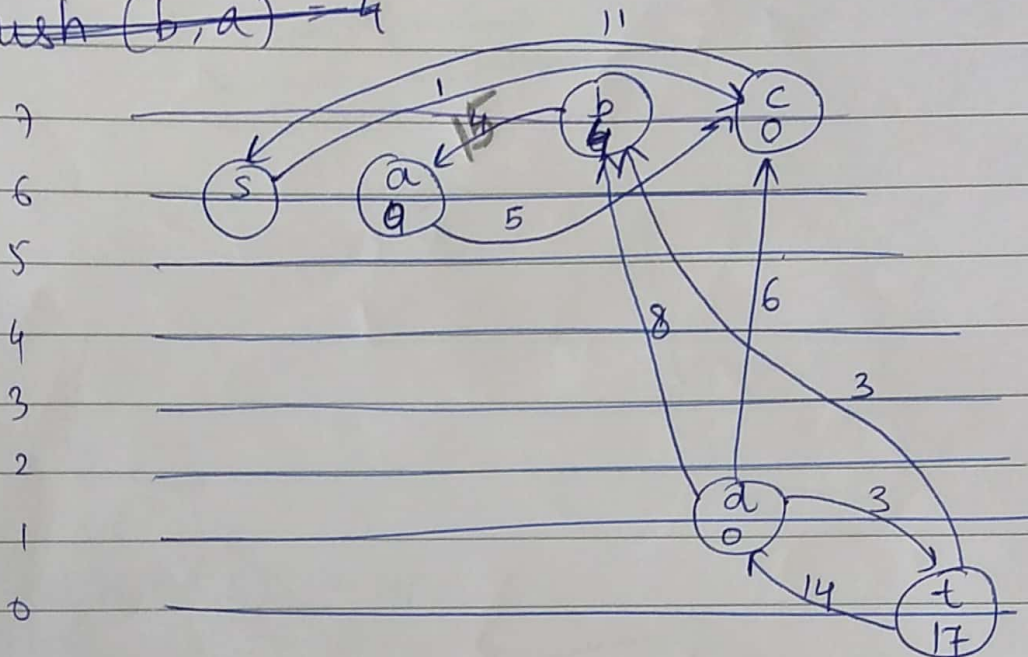 ush (b, a) = 4
11
7
1
b
c
0
6
s
a
5
5
4
8
6
3
3
2
d
0
3
1
14
0
t
17